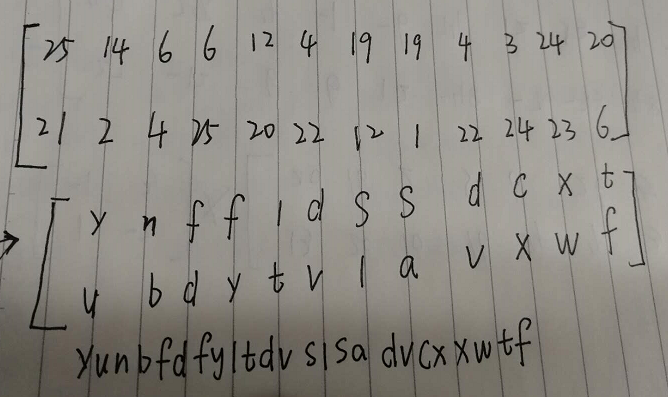 25 14 6 6 12 4 19 19 4 3 24 20
21 2 4 25 20 22 12 1 22 24 23 6
→ y n f f l d s s d c x t
u b d y t v l a v x w f
yunbfdfyltdvslsadvcxxwtf